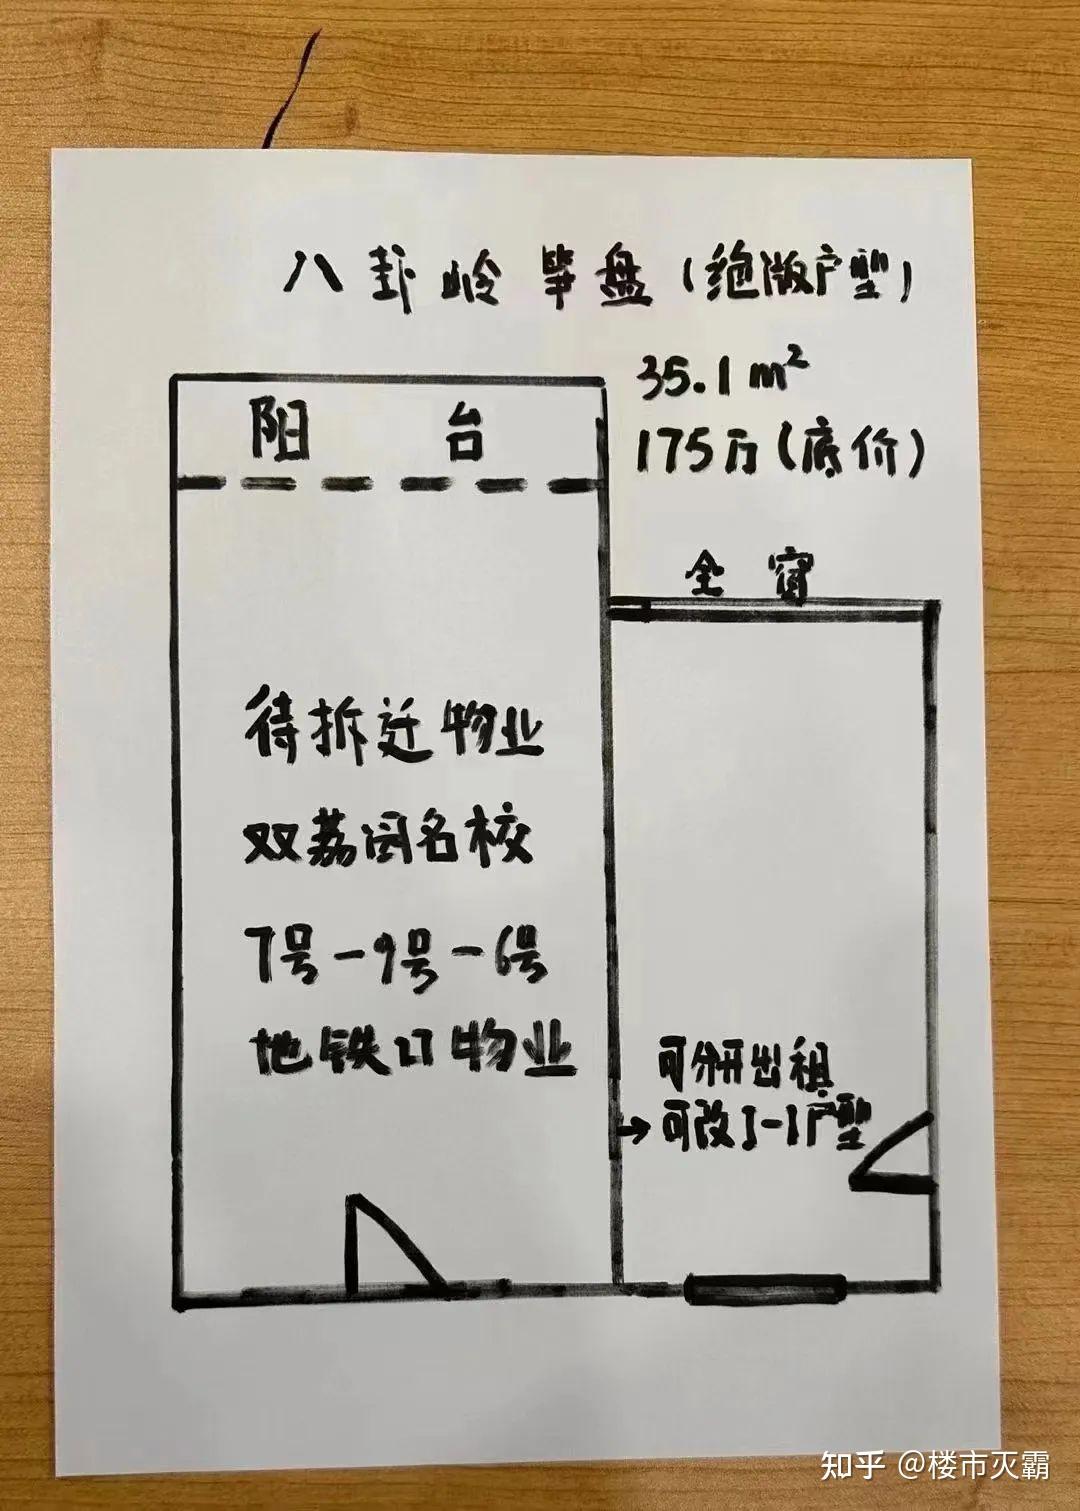 八卦岭笋盘(绝版户型)
35.1m²
175万(底价)
阳台
全窗
待拆迁物业
双荔园名校
7号-9号-6号
地铁口物业
可分开出租
→可改1-1户型
知乎 @楼市灭霸